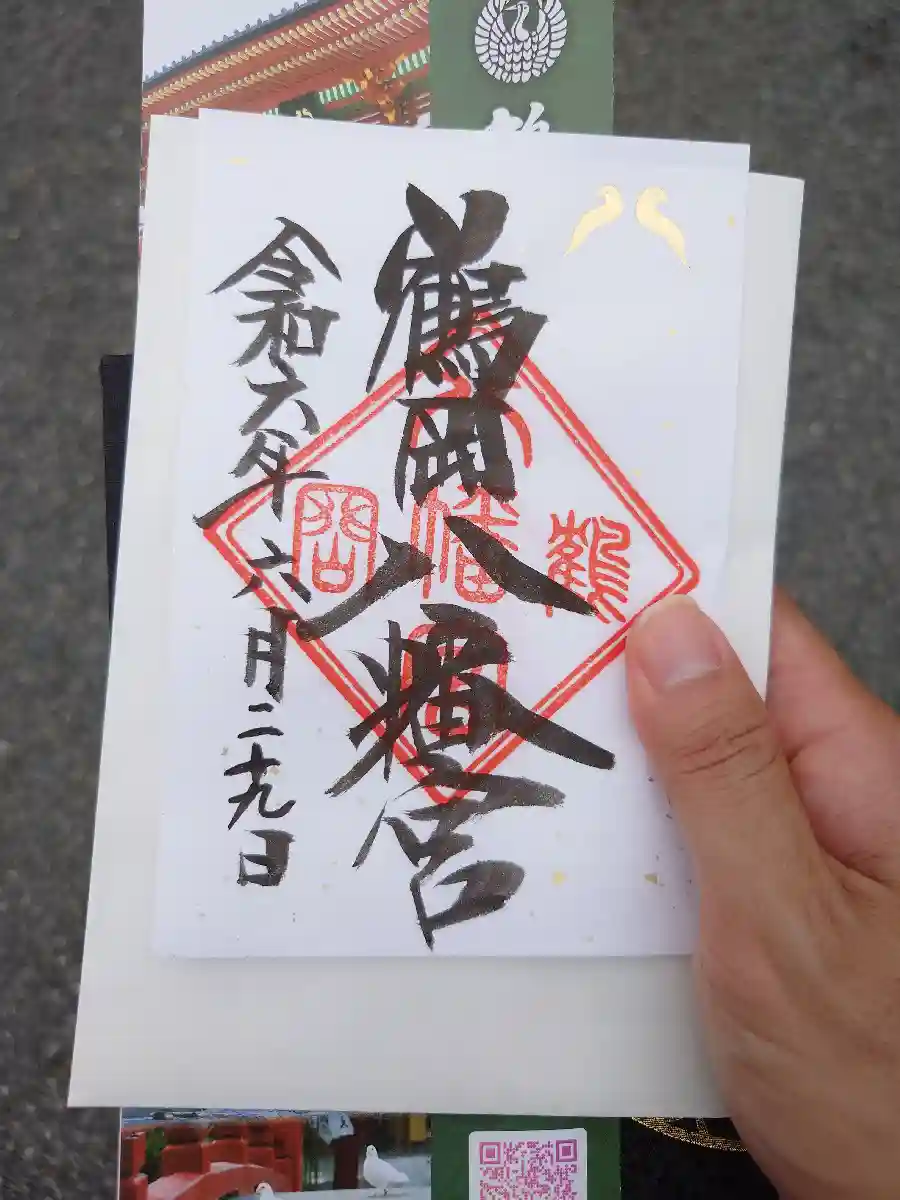 鶴
鶴岡八幡宮
令和六年六月二十九日
鶴
八幡宮
岡